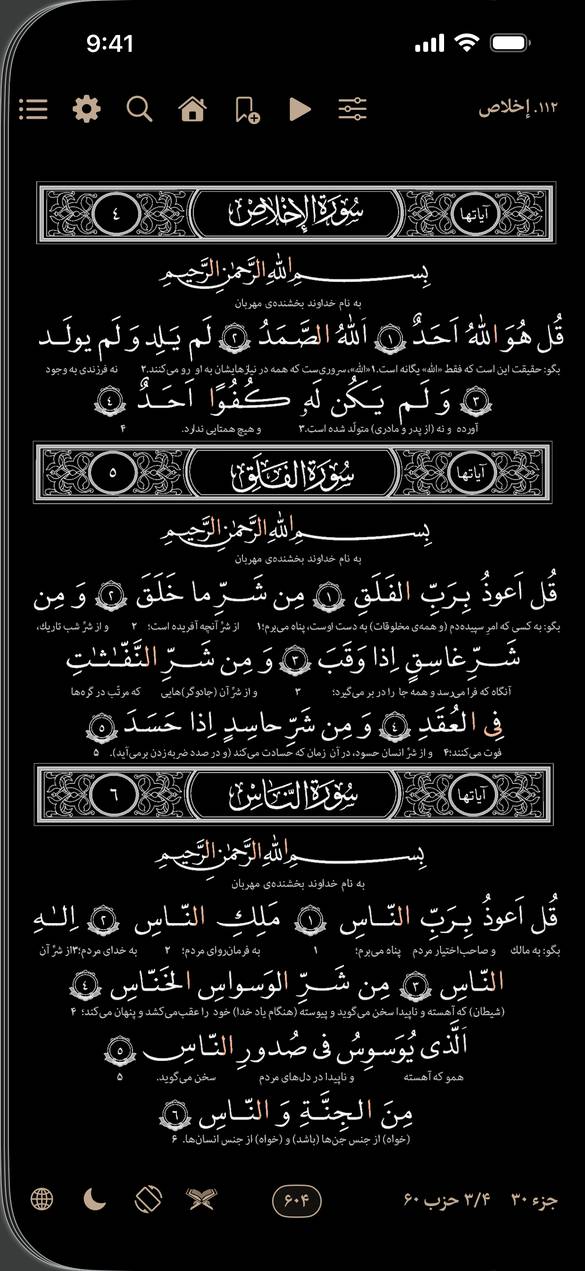 9:41
۱۱۲. إخلاص
آیاتها سُورَةُ الإِخْلَاصِ ٤
بِسمِ اللهِ الرَّحمٰنِ الرَّحیمِ
به نام خداوند بخشنده‌ی مهربان
قُل هُوَ اللهُ اَحَدٌ ١ اَللهُ الصَّمَدُ ٢ لَم یَـلِد وَ لَم یولَـد
بگو: حقیقت این است که فقط «الله» یگانه است.۱ «الله»، سروری‌ست که همه در نیازهایشان به او رو می‌کنند.۲ نه فرزندی به وجود
٣ وَ لَـم یَـکُن لَهٗ کُـفُوًا اَحَـدٌ ٤
آورده و نه (از پدر و مادری) متولّد شده است.۳ و هیچ همتایی ندارد. ۴
آیاتها سُورَةُ الفَلَقِ ٥
بِسمِ اللهِ الرَّحمٰنِ الرَّحیمِ
به نام خداوند بخشنده‌ی مهربان
قُل اَعوذُ بِـرَبِّ الفَلَقِ ١ مِن شَـرِّ ما خَلَقَ ٢ وَ مِن
بگو: به کسی که امر سپیده‌دم (و همه‌ی مخلوقات) به دست اوست، پناه می‌برم؛۱ از شرّ آنچه آفریده است؛ ۲ و از شرّ شب تاریك،
شَـرِّ غاسِقٍ اِذا وَقَبَ ٣ وَ مِن شَـرِّ النَّفّـٰثـٰتِ
آنگاه که فرا می‌رسد و همه جا را در بر می‌گیرد؛ ۳ و از شرّ آن (جادوگر)هایی که مرتّب در گره‌ها
فِی العُقَدِ ٤ وَ مِن شَرِّ حاسِدٍ اِذا حَسَدَ ٥
فوت می‌کنند؛۴ و از شرّ انسان حسود، در آن زمان که حسادت می‌کند (و در صدد ضربه‌زدن برمی‌آید). ۵
آیاتها سُورَةُ النَّاسِ ٦
بِسمِ اللهِ الرَّحمٰنِ الرَّحیمِ
به نام خداوند بخشنده‌ی مهربان
قُل اَعوذُ بِـرَبِّ النّـاسِ ١ مَلِكِ النّـاسِ ٢ اِلـٰهِ
بگو: به مالك و صاحب‌اختیار مردم پناه می‌برم؛ ۱ به فرمان‌روای مردم؛ ۲ به خدای مردم؛۳ از شرّ آن
النّاسِ ٣ مِن شَـرِّ الوَسواسِ الخَنّـاسِ ٤
(شیطان) که آهسته و ناپیدا سخن می‌گوید و پیوسته (هنگام یاد خدا) خود را عقب‌می‌کشد و پنهان می‌کند؛ ۴
اَلَّذی یُوَسوِسُ فی صُدورِ النّاسِ ٥
همو که آهسته و ناپیدا در دل‌های مردم سخن می‌گوید. ۵
مِنَ الجِنَّـةِ وَ النّـاسِ ٦
(خواه) از جنس جن‌ها (باشد) و (خواه) از جنس انسان‌ها. ۶
جزء ۳۰ ۳/۴ حزب ۶۰ ۶۰۴